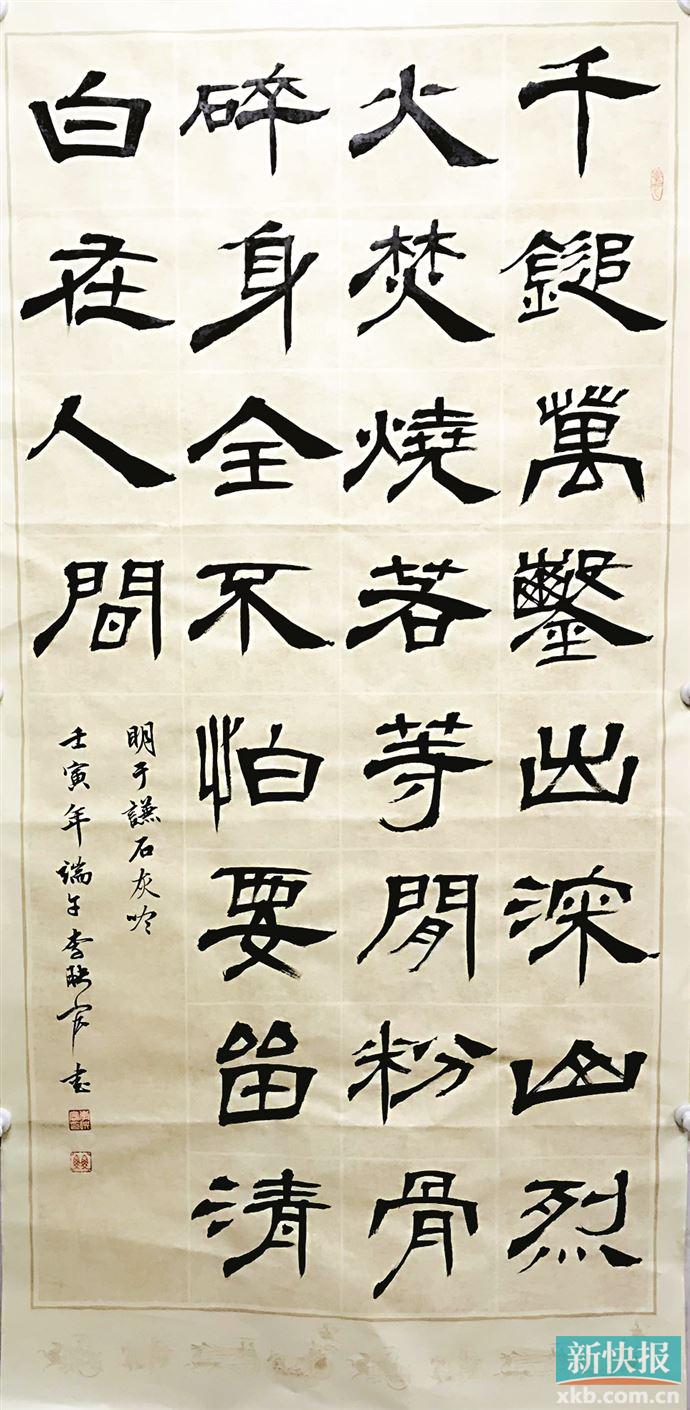 千鎚萬鑿出深山烈
火焚燒若等閒粉骨
碎身全不怕要留清
白在人間
明于謙石灰吟
壬寅年端午李映官書
新快报
xkb.com.cn